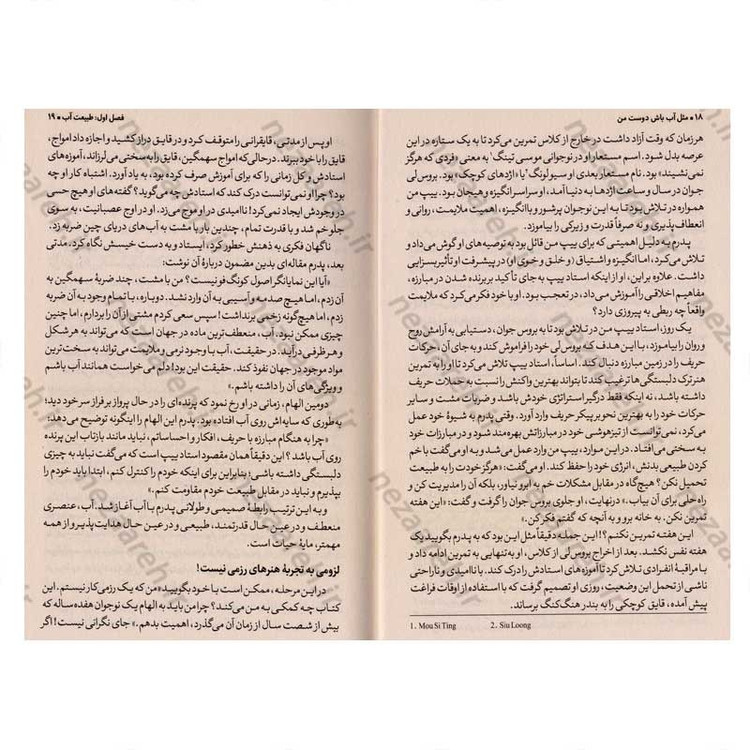 ۱۸ • مثل آب باش دوست من
هر زمان که وقت آزاد داشت در خارج از کلاس تمرین می‌کرد تا به یک ستاره در این
عرصه بدل شود. اسم مستعار او در نوجوانی موسی تینگ¹ به معنی «فردی که هرگز
نمی‌نشیند» بود. نام مستعار بعدی او سیولونگ² یا «اژدهای کوچک» بود. بروس‌لی
جوان در سال و ساعت اژدها به دنیا آمد، او سراسر انگیزه و هیجان بود. ییپ من
همواره در تلاش بود تا به این نوجوان پرشور و باانگیزه، اهمیت ملایمت، روانی و
انعطاف‌پذیری و نه صرفاً قدرت و زیرکی را بیاموزد.
پدرم به دلیل اهمیتی که برای ییپ من قائل بود به توصیه‌های او گوش می‌داد و
تلاش می‌کرد، اما انگیزه و اشتیاق (و خلق و خوی او) در پیشرفت او تأثیر بسزایی
داشت. علاوه بر این، او از اینکه استاد ییپ به جای تأکید بر برنده شدن در مبارزه،
مفاهیم اخلاقی را آموزش می‌داد، در تعجب بود. او با خود فکر می‌کرد که ملایمت
واقعاً چه ربطی به پیروزی دارد؟
یک روز، استاد ییپ من در تلاش بود تا به بروس لی جوان، دستیابی به آرامش روح
و روان را بیاموزد، با این هدف که بروس‌لی خود را فراموش کند و به جای آن، حرکات
حریف را در زمین مبارزه دنبال کند. اساساً، استاد ییپ تلاش می‌کرد تا او را به تمرین
هنر ترک دلبستگی‌ها ترغیب کند تا بتواند بهترین واکنش را نسبت به حملات حریف
داشته باشد، نه اینکه فقط درگیر استراتژی خودش باشد و ضربات مشت و سایر
حرکات خود را به بهترین نحو بر پیکر حریف وارد آورد. وقتی پدرم به شیوهٔ خود عمل
می‌کرد، نمی‌توانست از تیزهوشی خود در مبارزاتش بهره‌مند شود و در مبارزات خود
به سختی می‌افتاد. در این موارد، ییپ من وارد عمل می‌شد و به او می‌گفت با خم
کردن طبیعی بدنش، انرژی خود را حفظ کند. او می‌گفت: «هرگز خودت را به طبیعت
تحمیل نکن؟ هیچ‌گاه در مقابل مشکلات خم به ابرو نیاور، بلکه آن را مدیریت کن و
راه حلی برای آن بیاب.» درنهایت، او جلوی بروس جوان را گرفت و گفت: «این هفته
تمرین نکن. به خانه برو و به آنچه که گفتم فکر کن.»
این هفته تمرین نکنم؟! این جمله دقیقاً مثل این بود که به پدرم بگویید یک
هفته نفس نکشد. بعد از اخراج بروس لی از کلاس، او به‌تنهایی به تمرین ادامه داد و
با مراقبهٔ انفرادی تلاش کرد تا آموزه‌های استادش را درک کند. با ناامیدی و ناراحتی
ناشی از تحمل این وضعیت، روزی او تصمیم گرفت که با استفاده از اوقات فراغت
پیش آمده، قایق کوچکی را به بندر هنگ‌کنگ برساند.
1. Mou Si Ting 2. Siu Loong
فصل اول: طبیعت آب • ۱۹
او پس از مدتی، قایقرانی را متوقف کرد و در قایق دراز کشید و اجازه داد امواج،
قایق را با خود ببرند. در حالی که امواج سهمگین، قایق را به سختی می‌لرزاند، آموزه‌های
استادش و کل زمانی را که برای آموزش صرف کرده بود، به یاد آورد. اشتباه کار او چه
بود؟ چرا او نمی‌توانست درک کند که استادش چه می‌گوید؟ گفته‌های او هیچ حسی
در وجودش ایجاد نمی‌کرد! ناامیدی در او موج می‌زد. او در اوج عصبانیت، به سوی
جلو خم شد و با قدرت تمام، چندین بار با مشت به آب‌های دریای چین ضربه زد.
ناگهان فکری به ذهنش خطور کرد، ایستاد و به دست خیسش نگاه کرد. مدتی
بعد، پدرم مقاله‌ای بدین مضمون دربارهٔ آن نوشت:
«آیا این نمایانگر اصول کونگ فو نیست؟ من با مشت، چند ضربهٔ سهمگین به
آن زدم، اما هیچ صدمه و آسیبی به آن وارد نشد. دوباره، با تمام وجود به آن ضربه
زدم، اما هیچ‌گونه زخمی برنداشت! سپس سعی کردم مشتی از آن را بردارم، اما چنین
چیزی ممکن نبود. آب، منعطف‌ترین ماده در جهان است که می‌تواند به هر شکل
و هر ظرفی درآید. در حقیقت، آب با وجود نرمی و ملایمت می‌تواند به سخت‌ترین
مواد موجود در جهان نفوذ کند. حقیقت این بود! دلم می‌خواست همانند آب باشم
و ویژگی‌های آن را داشته باشم.»
دومین الهام، زمانی در او رخ نمود که پرنده‌ای را در حال پرواز بر فراز سر خود دید؛
به‌طوری که سایه‌اش روی آب افتاده بود. پدرم این الهام را اینگونه توضیح می‌دهد:
«چرا به هنگام مبارزه با حریف، افکار و احساساتم، نباید مانند بازتاب این پرنده
روی آب باشد؟ این دقیقاً همان مقصود استاد ییپ است که می‌گفت نباید به چیزی
دلبستگی داشته باشی؛ بنابراین برای اینکه خودم را کنترل کنم، ابتدا باید خودم را
بپذیرم و نباید در مقابل طبیعت خودم مقاومت کنم.»
و به این ترتیب رابطهٔ صمیمی و طولانی پدرم با آب آغاز شد. آب، عنصری
منعطف و در عین حال قدرتمند، طبیعی و در عین حال هدایت‌پذیر و از همه
مهمتر، مایهٔ حیات است.
لزومی به تجربهٔ هنرهای رزمی نیست!
در این مرحله، ممکن است با خود بگویید «من که یک رزمی‌کار نیستم. این
کتاب چه کمکی به من می‌کند؟ چرا من باید به الهام یک نوجوان هفده ساله که
بیش از شصت سال از زمان آن می‌گذرد، اهمیت بدهم.» جای نگرانی نیست! اگر
nezaareh.ir